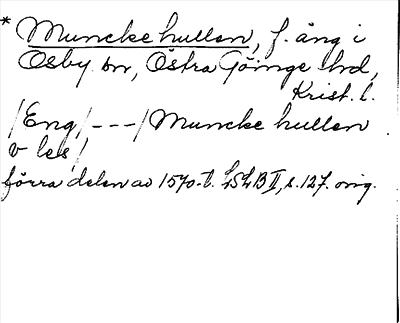 * Muncke hullen, f. äng i
Osby sn, Östra Göinge hd,
Krist. l.
/Eng/ - - - / Muncke hullen
v les /
förra delen av 1570-t. LSLB II, s. 127. orig.